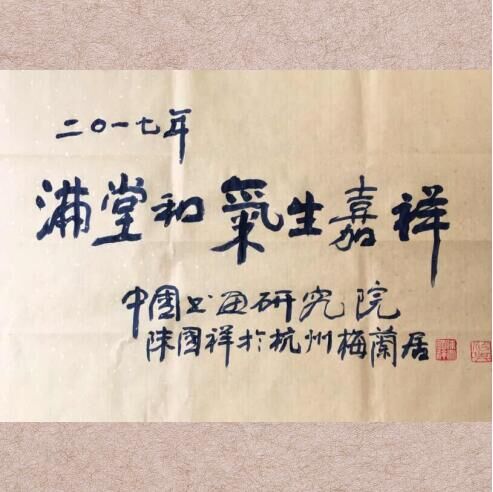 二〇一七年
满堂和氣生嘉祥
中國书画研究院
陈國祥於杭州梅蘭居